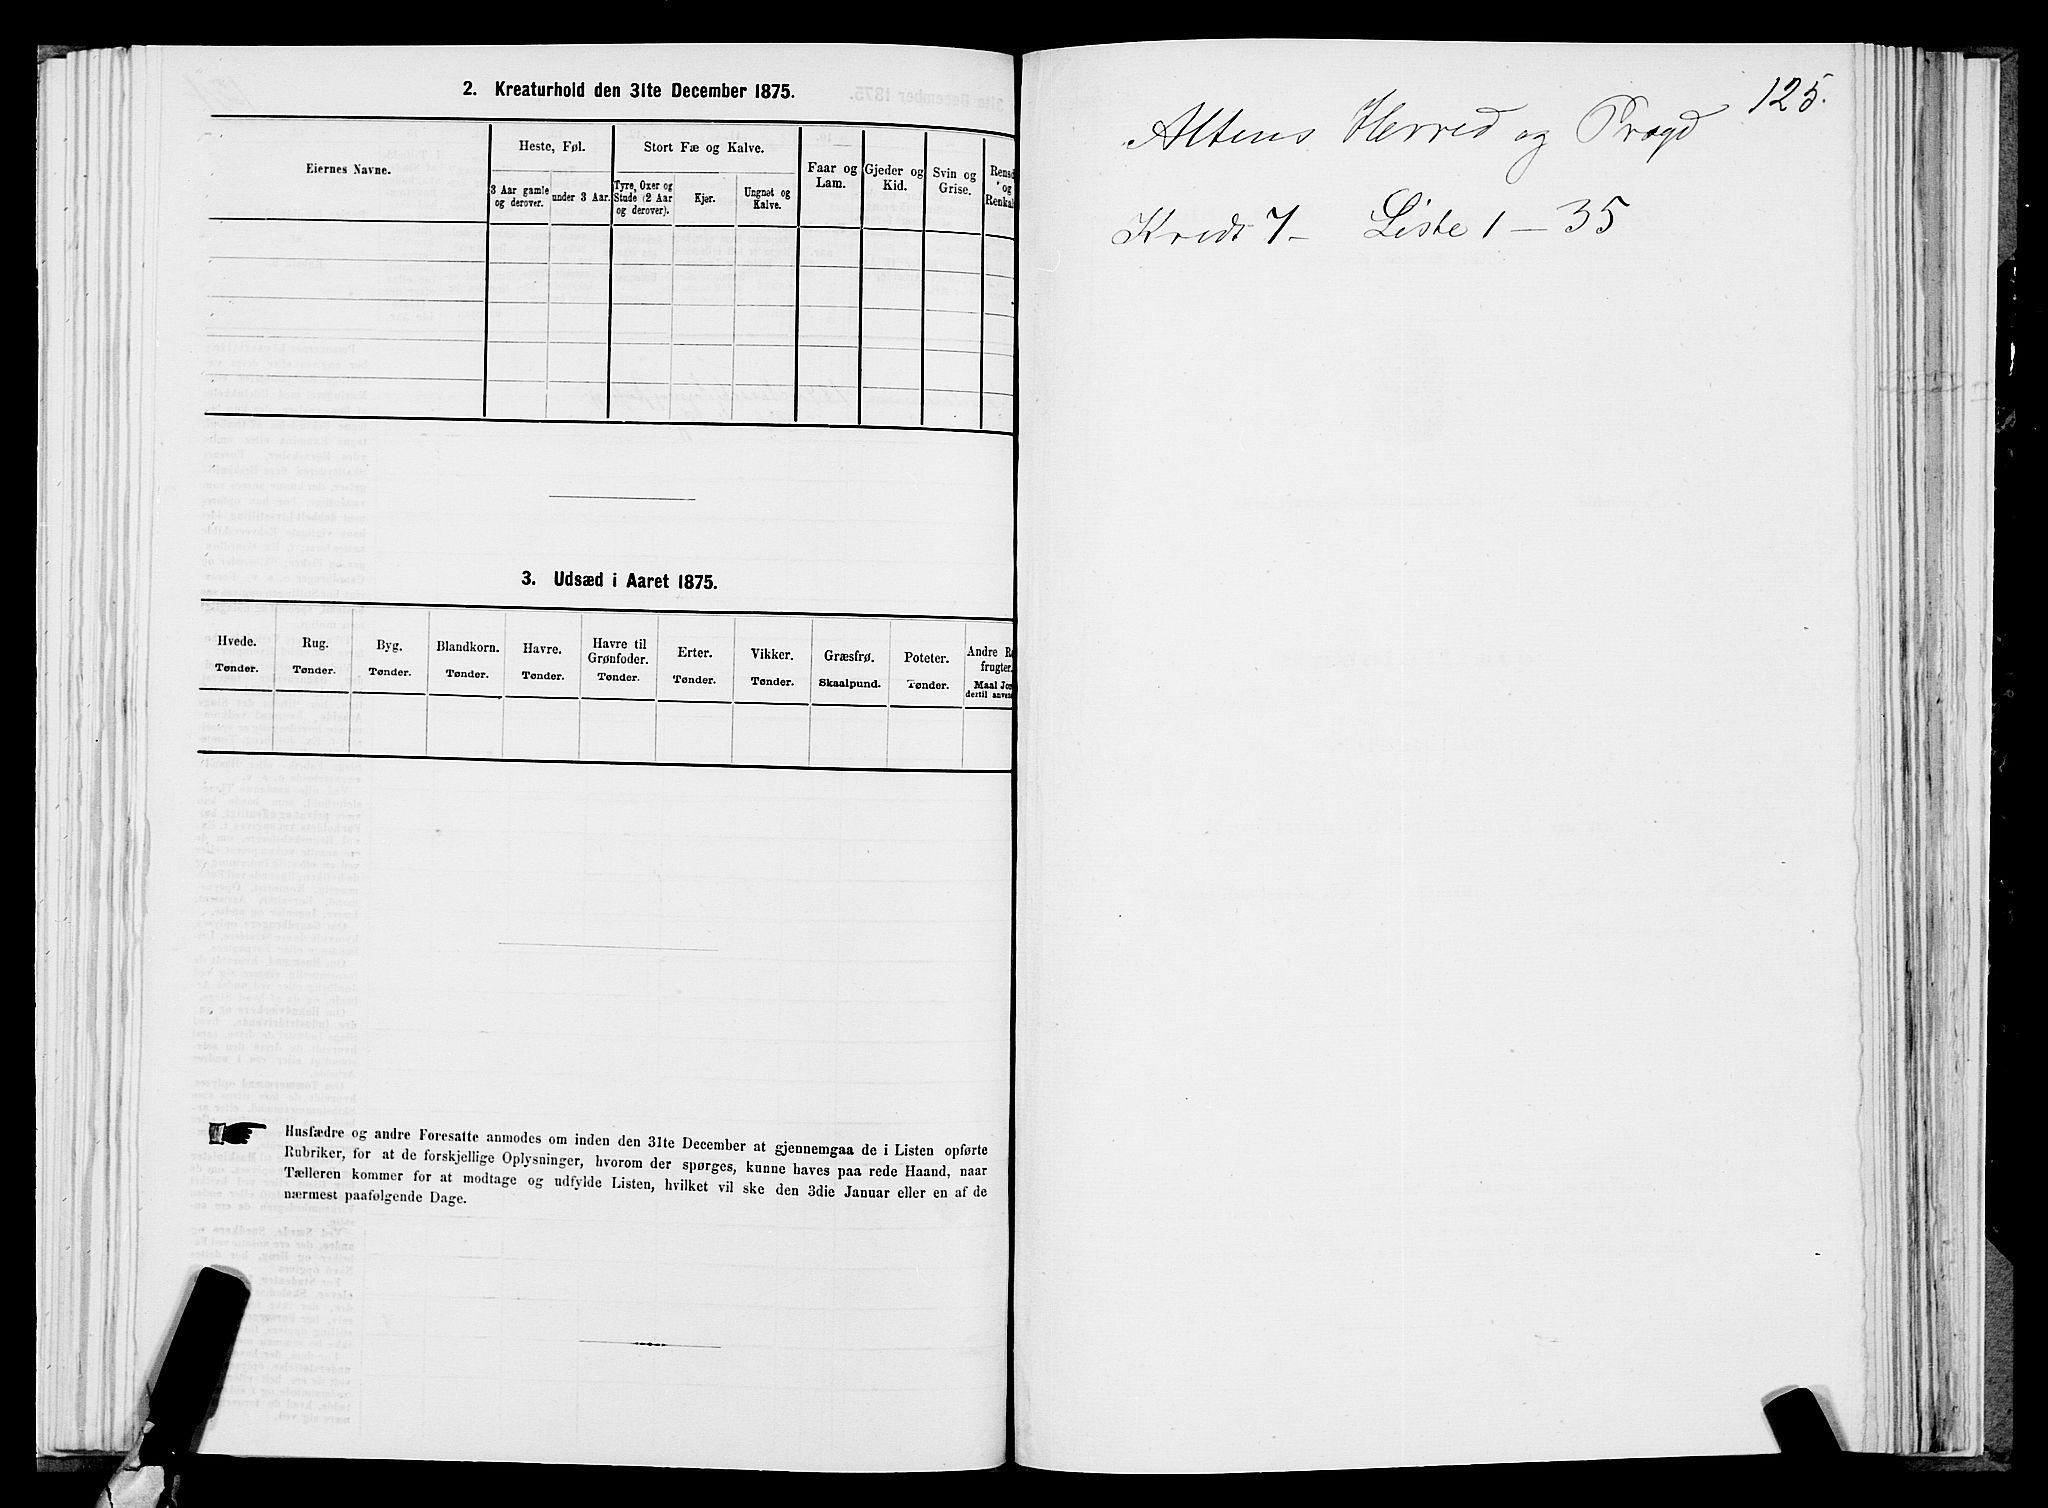 2. Kreaturhold den 31te December 1875.
Eiernes Navne.
Heste, Føl.
3 Aar gamle og derover.
under 3 Aar.
Stort Fæ og Kalve.
Tyre, Oxer og Stude (2 Aar og derover).
Kjør.
Ungnøt og Kalve.
Faar og Lam.
Gjeder og Kid.
Svin og Grise.
Rensd
og
Renkal
3. Udsæd i Aaret 1875.
Hvede.
Tønder.
Rug.
Tønder.
Byg.
Tønder.
Blandkorn.
Tønder.
Havre.
Tønder.
Havre til Grønfoder.
Tønder.
Erter.
Tønder.
Vikker.
Tønder.
Græsfrø.
Skaalpund.
Poteter.
Tønder.
Andre R
frugter.
Maal Jo
dertil anve
Husfædre og andre Foresatte anmodes om inden den 31te December at gjennemgaa de i Listen opførte
Rubriker, for at de forskjellige Oplysninger, hvorom der spørges, kunne haves paa rede Haand, naar
Tælleren kommer for at modtage og udfylde Listen, hvilket vil ske den 3die Januar eller en af de
nærmest paafølgende Dage.
125.
Altens Herred og Prægd
Kreds 7 - Liste 1 - 35